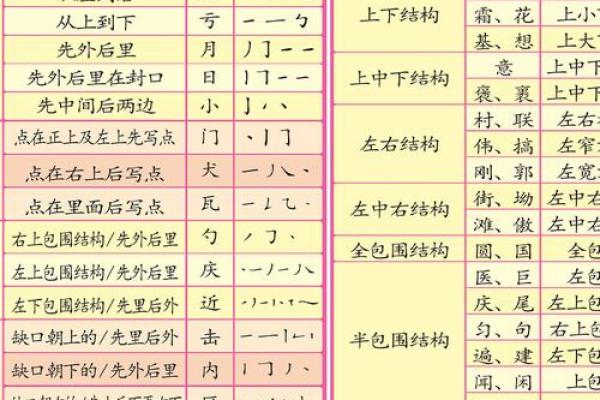 从上到下 亏
先外后里 月
先外后里在封口 日
先中间后两边 小
点在正上及左上先写点 门
点在右上后写点 犬
点在里面后写点 瓦
右上包围结构/先外后里 勺
左上包围结构/先外后里 庆
左下包围结构/先里后外 近
缺口朝上的/先里后外 击
缺口朝下的/先外后里 内
上下结构
霜、花 上小
基、想 上大
上中下结构
意 上中下
褒、裹 上中下
左右结构
村、联 左右
伟、搞 左窄
刚、郭 左宽
左中右结构
街、坳 左中右
滩、傲 左中右
全包围结构 圆、国 全包
半包围结构
医、巨 左包
庆、尾 左上包
匀、句 右上包
遍、建 左下包
闻、闲 上包